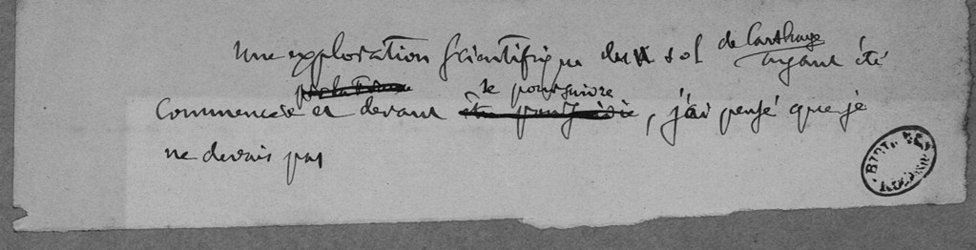 Une exploration scientifique du sol de Carthage ayant été
commencée et devant se poursuivre, j'ai pensé que je
ne devais pas